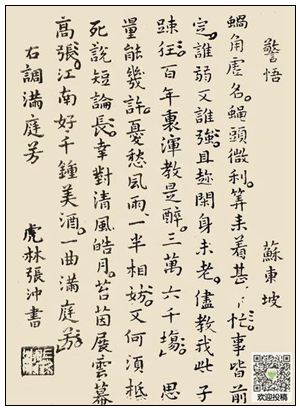 警悟 蘇東坡
蝸角虛名。蠅頭微利。筭来着甚忙。事皆前
定誰弱又誰強。且趂閒身未老。儘教我些子
踈狂。百年裏渾教是醉。三萬六千塲。思
量能幾許。憂愁風雨。一半相妨。又何須抵
死說短論長。幸對清風皓月。苔茵展雲幕
高張。江南好千鐘美酒。一曲滿庭芳。
右調滿庭芳 虎林張沖書
欢迎投稿